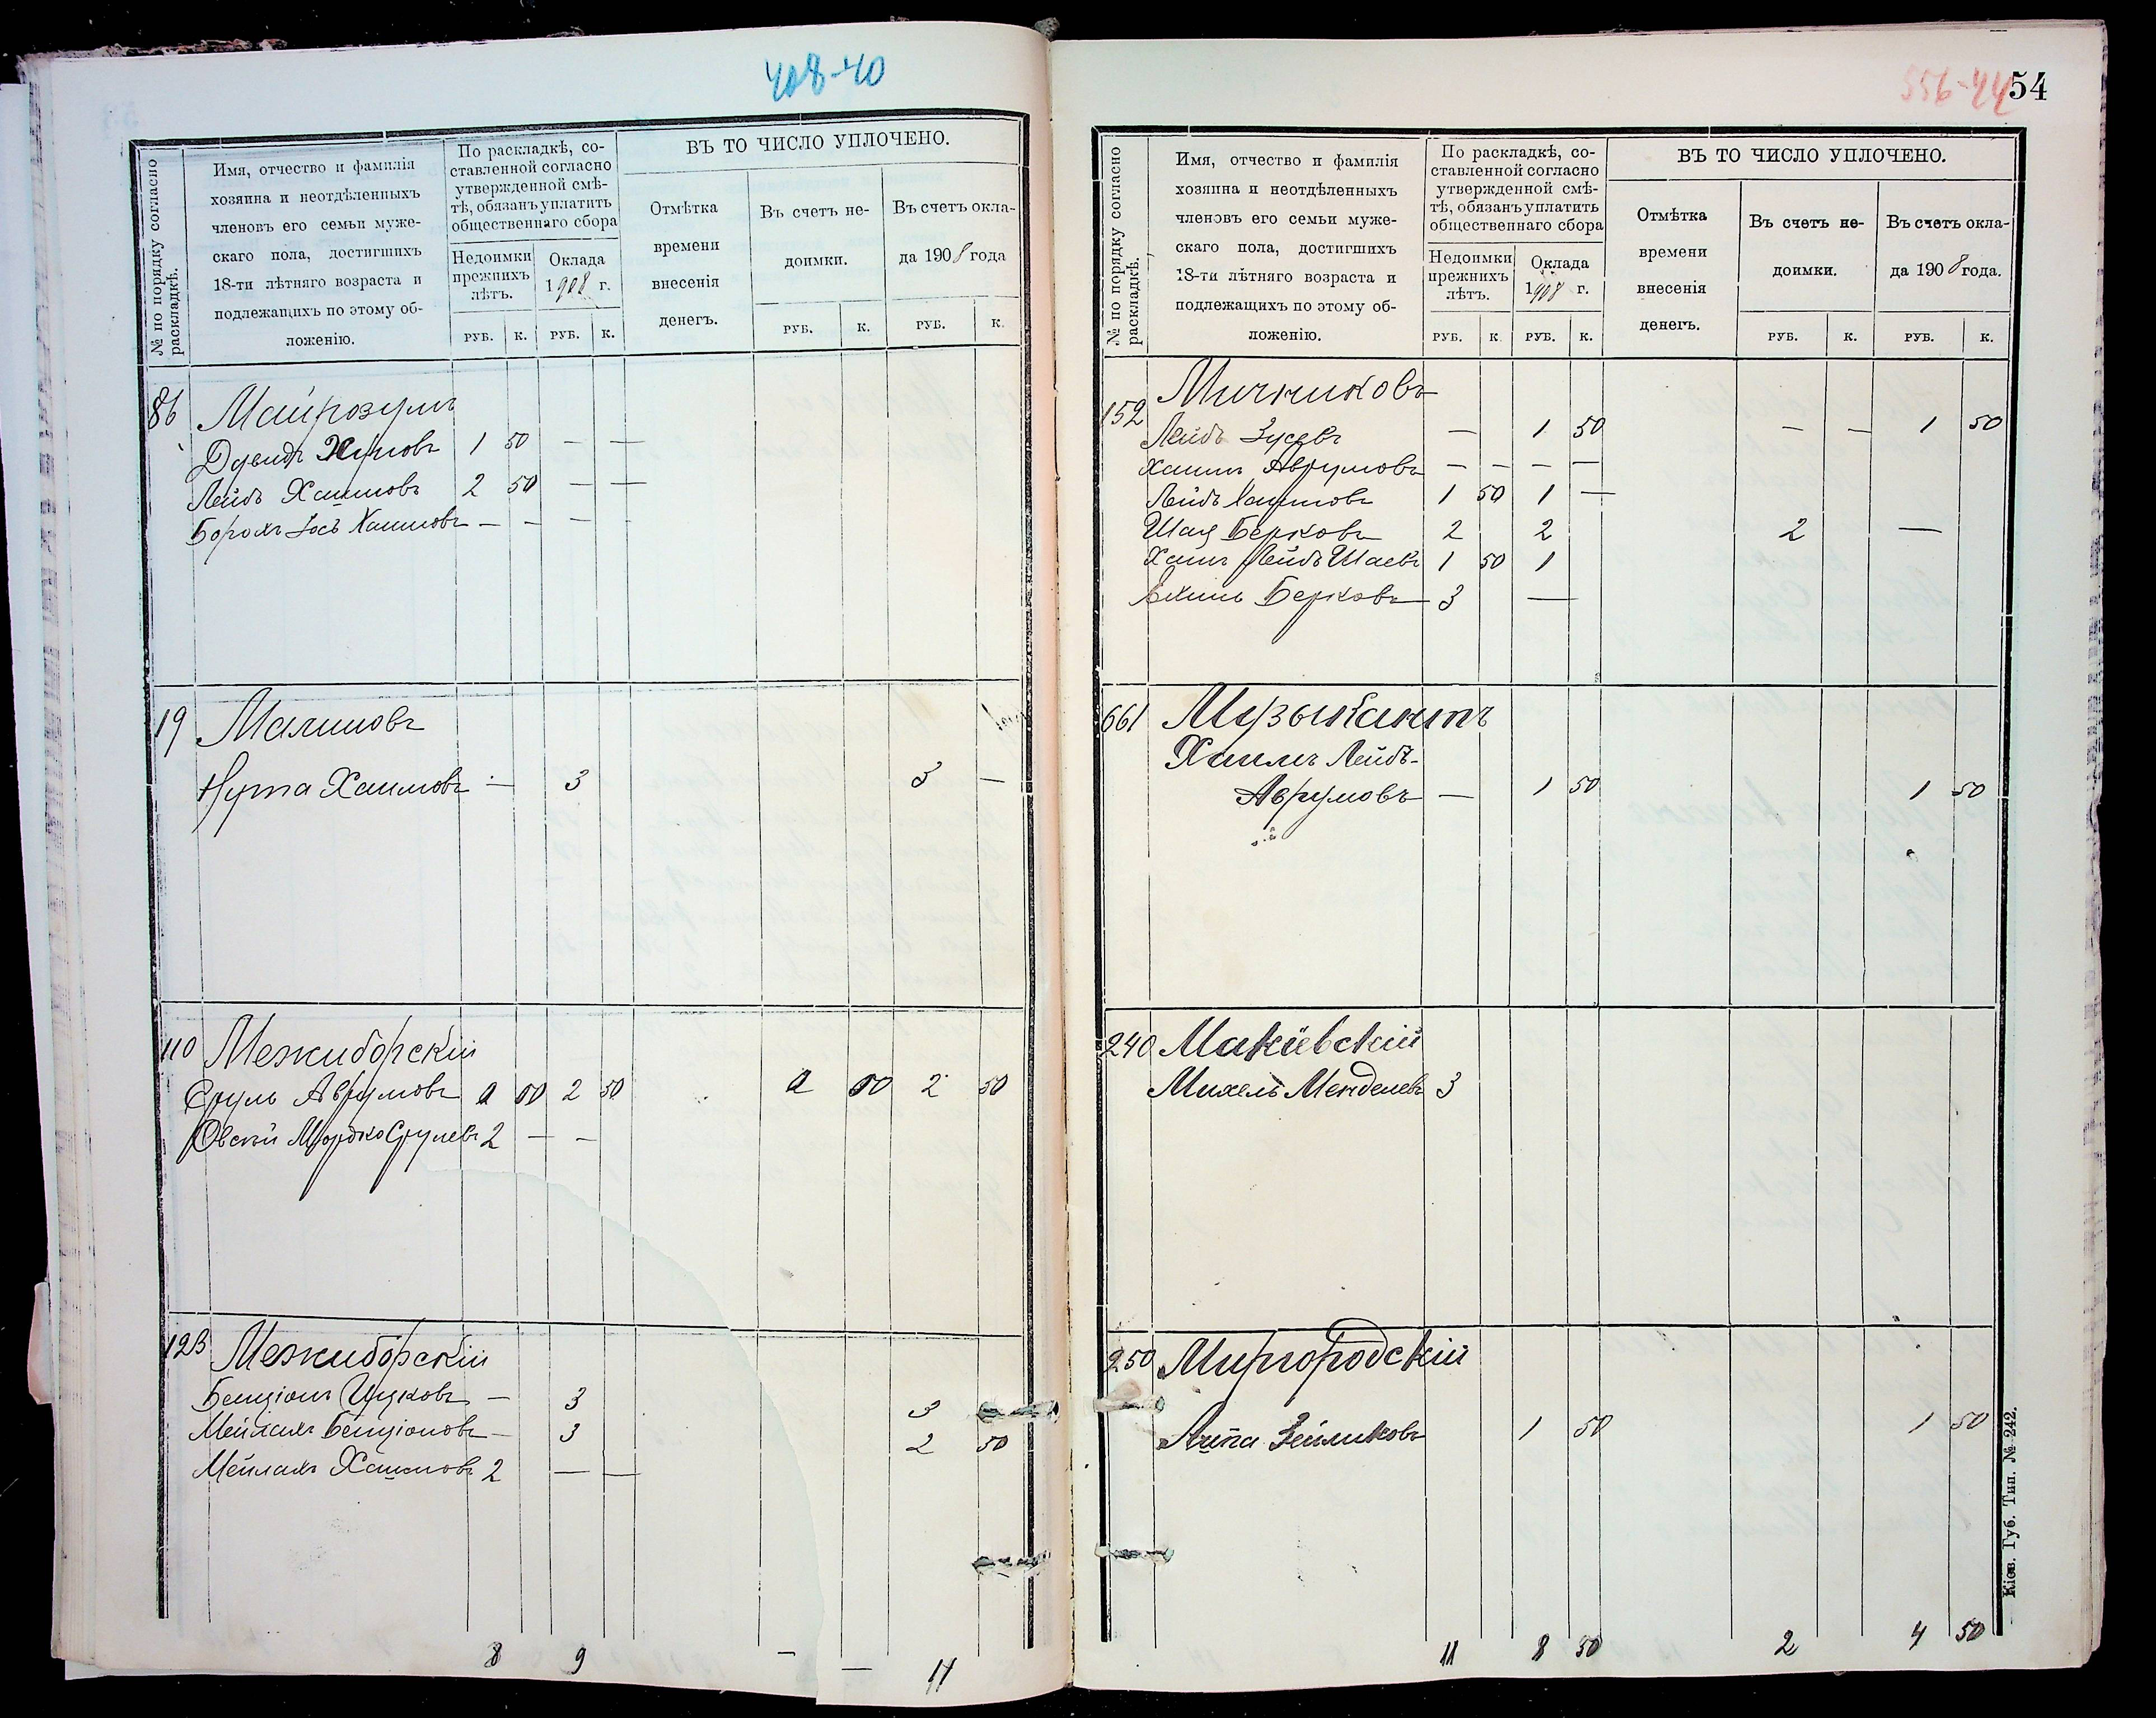 408-40
№ по порядку согласно раскладкѣ.
Имя, отчество и фамилія
хозяина и неотдѣленныхъ
членовъ его семьи муже-
скаго пола, достигшихъ
18-ти лѣтняго возраста и
подлежащихъ по этому об-
ложенію.
По раскладкѣ, со-
ставленной согласно
утвержденной смѣ-
тѣ, обязанъ уплатить
общественнаго сбора
Недоимки
прежнихъ
лѣтъ.
Оклада
1908 г.
РУБ. К. РУБ. К.
ВЪ ТО ЧИСЛО УПЛОЧЕНО.
Отмѣтка
времени
внесенія
денегъ.
Въ счетъ не-
доимки.
Въ счетъ окла-
да 1908 года
РУБ. К. РУБ. К.
86 Майрозумъ
Дувидъ 1 50 — —
Лейбъ Хаимовъ 2 50 — —
Борохъ Іосъ Хаимовъ — - — -
19 Малиновъ
Нута Хаимовъ — 3 3 —
110 Межиборскій
Сруль Аврумовъ 2 50 2 50
Овсѣй Мордко Срулевъ 2 — —
123 Межиборскій
Бенціонъ Ицковъ — 3 3
Мейлахъ Бенціоновъ — 3 2 50
Мейлахъ Хаимовъ 2 — —
8 9 — — 11
556-44 54
№ по порядку согласно раскладкѣ.
Имя, отчество и фамилія
хозяина и неотдѣленныхъ
членовъ его семьи муже-
скаго пола, достигшихъ
18-ти лѣтняго возраста и
подлежащихъ по этому об-
ложенію.
По раскладкѣ, со-
ставленной согласно
утвержденной смѣ-
тѣ, обязанъ уплатить
общественнаго сбора
Недоимки
прежнихъ
лѣтъ.
Оклада
1908 г.
РУБ. К. РУБ. К.
ВЪ ТО ЧИСЛО УПЛОЧЕНО.
Отмѣтка
времени
внесенія
денегъ.
Въ счетъ не-
доимки.
Въ счетъ окла-
да 1908 года.
РУБ. К. РУБ. К.
152 Мичниковъ
Лейбъ Зусевъ — 1 50 — — 1 50
Хаимъ Аврумовъ — — — —
Лейбъ Хаимовъ 1 50 1 —
Шая Берковъ 2 2 2 —
Хаимъ Лейбъ Шаевъ 1 50 1
Берковъ 3 —
661 Музыкантъ
Хаимъ Лейбъ-
Аврумовъ — 1 50 1 50
240 Макіевскій
Михель Менделевъ 3
250 Миргородскій
Липа Зейликовъ 1 50 1 50
11 8 50 2 4 50
Кіев. Губ. Тип. № 242.